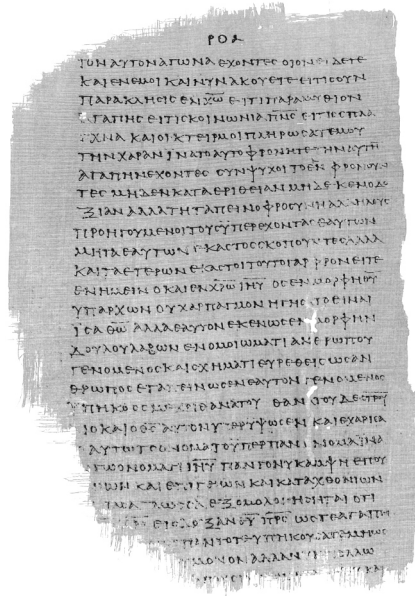 ΤΟΝ ΑΥΤΟΝ ΑΓΩΝΑ ΕΧΟΝΤΕΣ ΟΙΟΝ ΕΙΔΕΤΕ
ΚΑΙ ΕΝ ΕΜΟΙ ΚΑΙ ΝΥΝ ΑΚΟΥΕΤΕ ΕΙ ΤΙΣ ΟΥΝ
ΠΑΡΑΚΛΗΣΙΣ ΕΝ Χ̅Ω̅ ΕΙ ΤΙ ΠΑΡΑΜΥΘΙΟΝ
ΑΓΑΠΗΣ ΕΙ ΤΙΣ ΚΟΙΝΩΝΙΑ Π̅Ν̅Σ̅ ΕΙ ΤΙΣ ΣΠΛΑ
ΓΧΝΑ ΚΑΙ ΟΙΚΤΕΙΡΜΟΙ ΠΛΗΡΩΣΑΤΕ ΜΟΥ
ΤΗΝ ΧΑΡΑΝ ΙΝΑ ΤΟ ΑΥΤΟ ΦΡΟΝΗΤΕ ΤΗΝ ΑΥΤΗ
ΑΓΑΠΗΝ ΕΧΟΝΤΕΣ ΣΥΝΨΥΧΟΙ ΤΟ ΕΝ ΦΡΟΝΟΥΝ
ΤΕΣ ΜΗΔΕΝ ΚΑΤ ΕΡΙΘΕΙΑΝ ΜΗΔΕ ΚΕΝΟΔΟ
ΞΙΑΝ ΑΛΛΑ ΤΗ ΤΑΠΕΙΝΟΦΡΟΣΥΝΗ ΑΛΛΗΛΟΥΣ
ΠΡΟΗΓΟΥΜΕΝΟΙ ΤΟΥΣ ΥΠΕΡΕΧΟΝΤΑΣ ΕΑΥΤΩΝ
ΜΗ ΤΑ ΕΑΥΤΩΝ ΕΚΑΣΤΟΣ ΣΚΟΠΟΥΝΤΕΣ ΑΛΛΑ
ΚΑΙ ΤΑ ΕΤΕΡΩΝ ΕΚΑΣΤΟΙ ΤΟΥΤΟ ΓΑΡ ΦΡΟΝΕΙΤΕ
ΕΝ ΗΜΕΙΝ Ο ΚΑΙ ΕΝ Χ̅Ρ̅Ω̅ Ι̅Η̅Υ̅ ΟΣ ΕΝ ΜΟΡΦΗ Θ̅Υ̅
ΥΠΑΡΧΩΝ ΟΥΧ ΑΡΠΑΓΜΟΝ ΗΓΗΣΑΤΟ ΕΙΝΑΙ
ΙΣΑ Θ̅Ω̅ ΑΛΛΑ ΕΑΥΤΟΝ ΕΚΕΝΩΣΕΝ ΜΟΡΦΗΝ
ΔΟΥΛΟΥ ΛΑΒΩΝ ΕΝ ΟΜΟΙΩΜΑΤΙ ΑΝΘΡΩΠΟΥ
ΓΕΝΟΜΕΝΟΣ ΚΑΙ ΣΧΗΜΑΤΙ ΕΥΡΕΘΕΙΣ ΩΣ ΑΝ
ΘΡΩΠΟΣ ΕΤΑΠΕΙΝΩΣΕΝ ΕΑΥΤΟΝ ΓΕΝΟΜΕΝΟΣ
ΥΠΗΚΟΟΣ ΜΕΧΡΙ ΘΑΝΑΤΟΥ ΘΑΝΑΤΟΥ ΔΕ
ΔΙΟ ΚΑΙ Ο Θ̅Σ̅ ΑΥΤΟΝ ΥΠΕΡΥΨΩΣΕΝ ΚΑΙ ΕΧΑΡΙΣΑ
ΑΥΤΩ ΤΟ ΟΝΟΜΑ ΤΟ ΥΠΕΡ ΠΑΝ ΟΝΟΜΑ ΙΝΑ
ΟΝΟΜΑΤΙ Ι̅Η̅Υ̅ ΠΑΝ ΓΟΝΥ ΚΑΜΨΗ ΕΠΟΥ
ΚΑΙ ΕΠΙΓΕΙΩΝ ΚΑΙ ΚΑΤΑΧΘΟΝΙΩΝ
ΓΛΩΣΣΑ ΕΞΟΜΟΛΟΓΗΣΗΤΑΙ ΟΤΙ
ΕΙΣ ΔΟΞΑΝ Θ̅Υ̅ Π̅Ρ̅Σ̅ ΩΣΤΕ ΑΓΑΠΗ
ΠΑΝΤΟΤΕ ΥΠΗΚΟΥΣΑΤΕ ΜΗ ΩΣ
ΜΟΝΟΝ ΑΛΛΑ ΝΥΝ